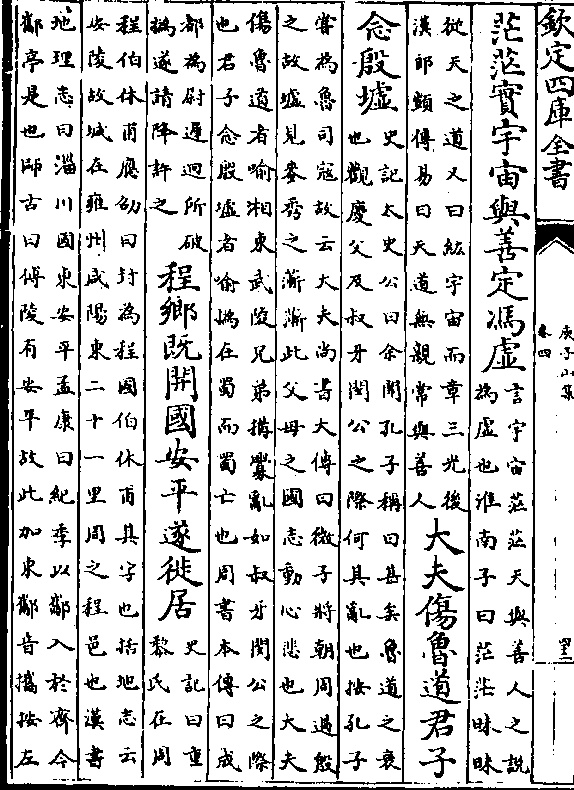 欽定四庫全書
庾子山集
卷四
茫茫實宇宙與善定馮虚
言宇宙茫茫天與善人之説
為虚也淮南子曰茫茫昧昧
從天之道又曰紘宇宙而章三光後
漢郎顗傳易曰天道無親常與善人
大夫傷魯道君子
念殷墟
史記太史公曰余聞孔子稱曰甚矣魯道之衰
也觀慶父及叔牙閔公之際何其亂也按孔子
嘗為魯司寇故云大夫尚書大傳曰微子將朝周過殷
之故墟見麥秀之漸漸此父母之國志動心悲也大夫
傷魯道者喻湘東武陵兄弟搆釁亂如叔牙閔公之際
也君子念殷墟者喻撝在蜀而蜀亡也周書本傳曰成
都為尉遲迥所破
撝遂請降許之
程鄉既開國安平遂徙居
史記曰重
黎氏在周
程伯休甫應劭曰封為程國伯休甫其字也括地志云
安陵故城在雍州咸陽東二十一里周之程邑也漢書
地理志曰淄川國東安平孟康曰紀季以酅入於齊今
酅亭是也師古曰傅陵有安平故此加東酅音攜按左